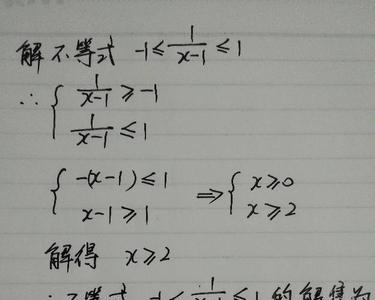 解不等式 -1≤1/(x-1)≤1
∴ { 1/(x-1)≥-1
1/(x-1)≤1
{ -(x-1)≤1 ⇒ { x≥0
x-1≥1 x≥2
解得 x≥2
∴不等式 -1≤1/(x-1)≤1 的解集为